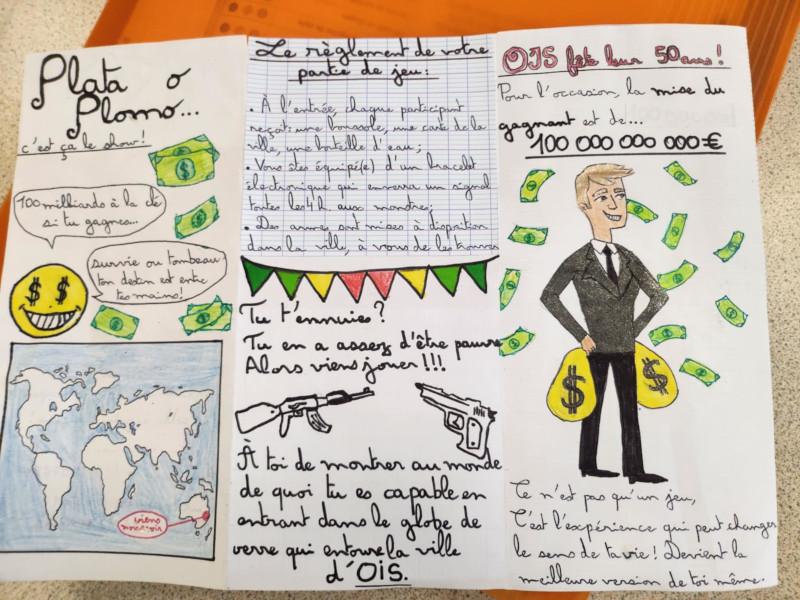 Plata o
Plomo...
c'est ça le show!
100 milliards à la clé
si tu gagnes...
survie ou tombeau
ton destin est entre
tes mains!
viens
nous voir
Le règlement de votre
partie de jeu:
• À l'entrée, chaque participant
reçoit: une boussole, une carte de la
ville, une bouteille d'eau;
• Vous êtes équipé(e) d'un bracelet
électronique qui enverra un signal
toutes les 4 h. aux montres;
• Des armes sont mises à disposition
dans la ville, à vous de les trouver
Tu t'ennuies?
Tu en a assez d'être pauvre
Alors viens jouer!!!
À toi de montrer au monde
de quoi tu es capable en
entrant dans le globe de
verre qui entoure la ville
d'OIS.
OIS fêt leur 50 ans!
Pour l'occasion, la mise du
gagnant est de...
100 000 000 000€
$
$
Ce n'est pas qu'un jeu,
C'est l'expérience qui peut changer
le sens de ta vie! Devient la
meilleure version de toi même.